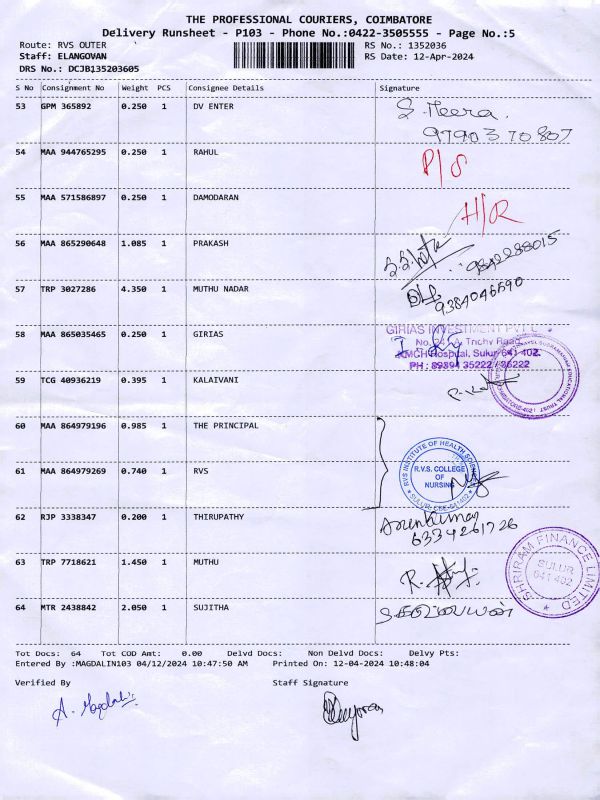 THE PROFESSIONAL COURIERS, COIMBATORE
Delivery Runsheet - P103 - Phone No.:0422-3505555 - Page No.:5
Route: RVS OUTER
RS No.: 1352036
Staff: ELANGOVAN
RS Date: 12-Apr-2024
DRS No.: DCJB135203605
S No Consignment No Weight PCS Consignee Details Signature
53 GPM 365892 0.250 1 DV ENTER S. Meera.
9790370807
54 MAA 944765295 0.250 1 RAHUL P/S
55 MAA 571586897 0.250 1 DAMODARAN H/R
56 MAA 865290648 1.085 1 PRAKASH
57 TRP 3027286 4.350 1 MUTHU NADAR 9384046690
58 MAA 865035465 0.250 1 GIRIAS
GIRIAS INVESTMENT PVT L
Trichy Road
Hospital, Sulur 641 402.
59 TCG 40936219 0.395 1 KALAIVANI
60 MAA 864979196 0.985 1 THE PRINCIPAL
RVS INSTITUTE OF HEALTH SCIENCE
R.V.S. COLLEGE
OF
NURSING
61 MAA 864979269 0.740 1 RVS
62 RJP 3338347 0.200 1 THIRUPATHY Arunkumar
63 TRP 7718621 1.450 1 MUTHU
SHRIRAM FINANCE LIMITED
SULUR
641 402
64 MTR 2438842 2.050 1 SUJITHA
Tot Docs: 64 Tot COD Amt: 0.00 Delvd Docs: Non Delvd Docs: Delvy Pts:
Entered By :MAGDALIN103 04/12/2024 10:47:50 AM Printed On: 12-04-2024 10:48:04
Verified By Staff Signature